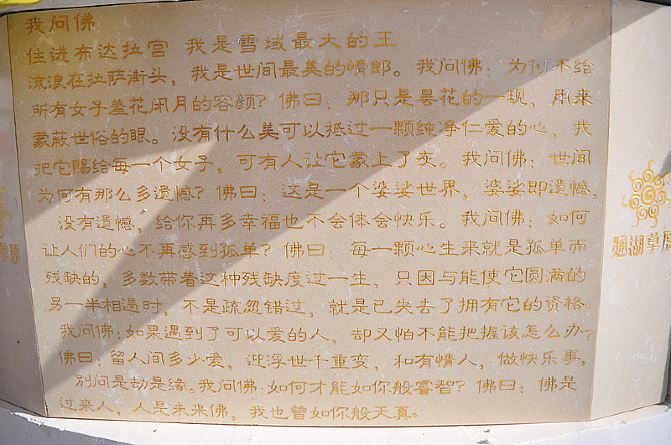 我问佛
住进布达拉宫 我是雪域最大的王
流浪在拉萨街头，我是世间最美的情郎。我问佛：为何不给
所有女子羞花闭月的容颜？佛曰：那只是昙花的一现，用来
蒙蔽世俗的眼。没有什么美可以抵过一颗纯净仁爱的心，我
把它赐给每一个女子，可有人让它蒙上了灰。我问佛：世间
为何有那么多遗憾？佛曰：这是一个婆娑世界，婆娑即遗憾，
没有遗憾，给你再多幸福也不会体会快乐。我问佛：如何
让人们的心不再感到孤单？佛曰：每一颗心生来就是孤单而
残缺的，多数带着这种残缺度过一生，只因与能使它圆满的
另一半相遇时，不是疏忽错过，就是已失去了拥有它的资格。
我问佛：如果遇到了可以爱的人，却又怕不能把握该怎么办？
佛曰：留人间多少爱，迎浮世千重变，和有情人，做快乐事，
别问是劫是缘。我问佛：如何才能如你般睿智？佛曰：佛是
过来人，人是未来佛，我也曾如你般天真。
草原
湖草原